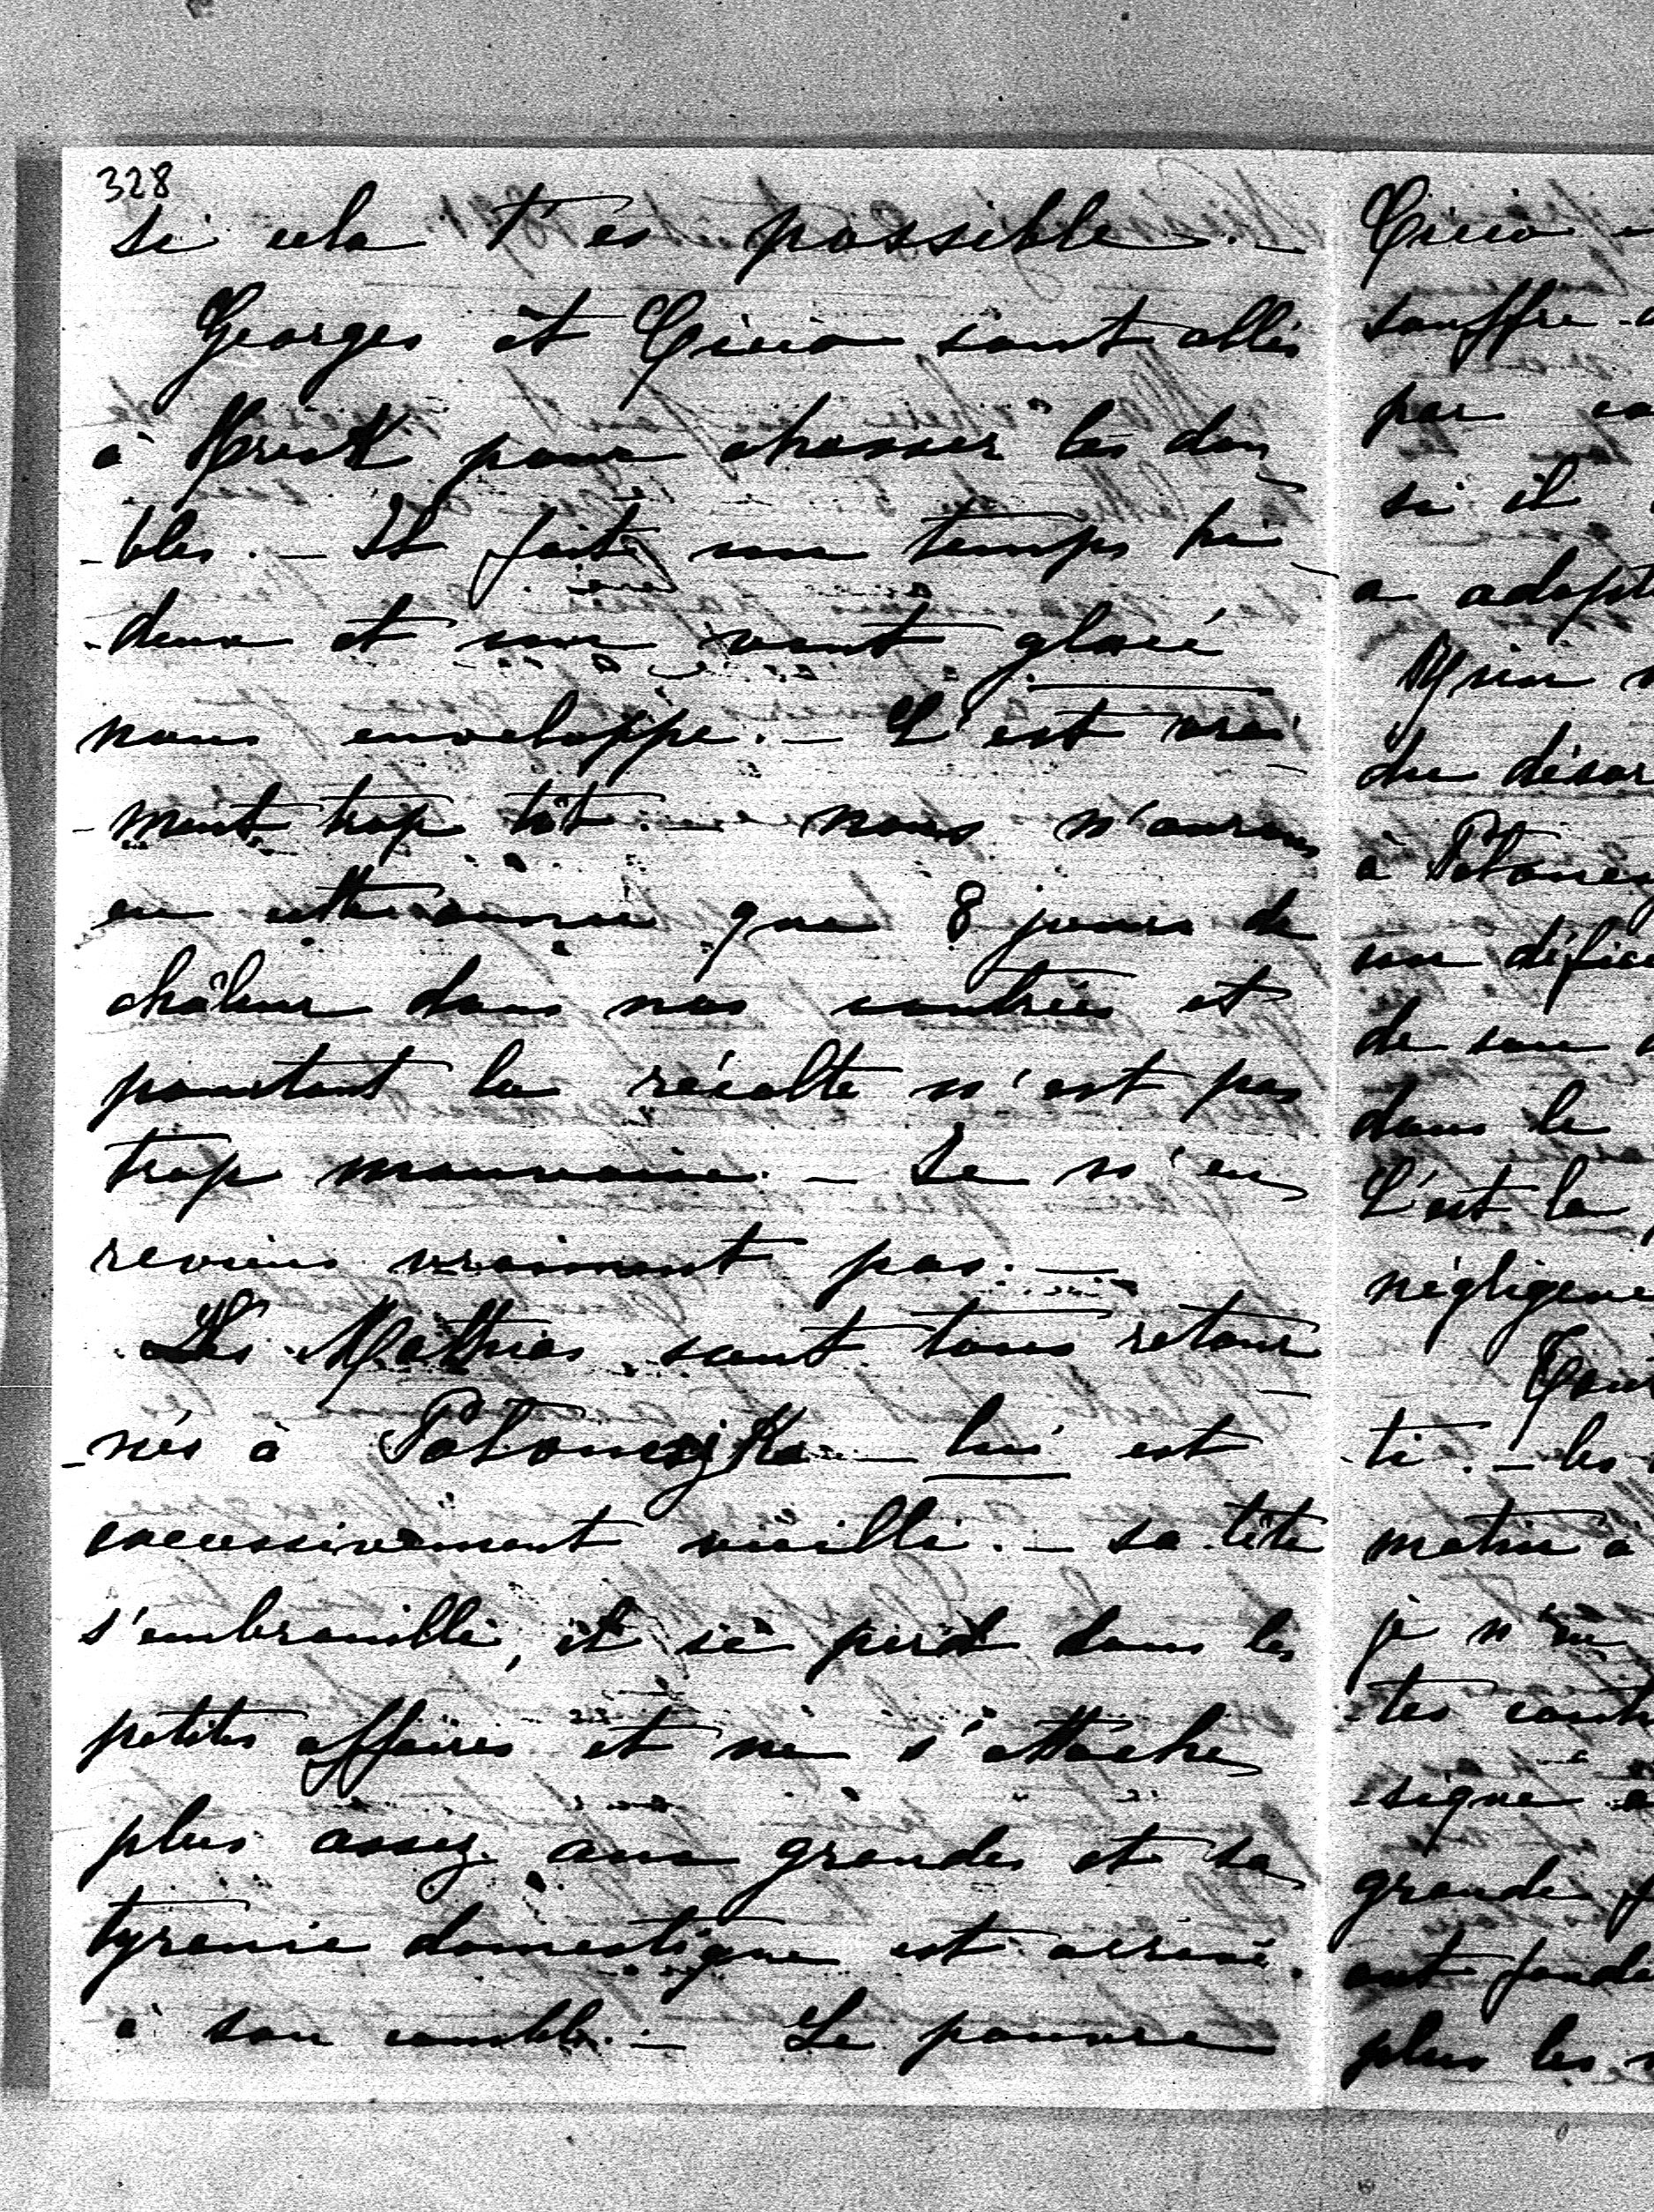 328
si cela t'es possible. –
Georges et Ciccio sont allés
à pour chasser les dou
-bles. – Il fait un temps hi
-deux et un vent glacé
nous enveloppe. – C'est vrai
-ment trop tôt – nous n'aurons
eu cette année que 8 jours de
châleur dans nos contrées et
pourtant la récolte n'est pas
trop mauvaise. – Je n'en
reviens vraiment pas. –
Les Mathias sont tous retour
-nés à – lui est
excessivement vieilli. – sa tête
s'embrouille, il se perd dans les
petites affaires et ne s'attache
plus assez aux grandes et sa
tyrannie domestique est arrivée
à son comble. – Le pauvre
Ciccio
souffre
par
si il
a adopté
du désor
à
un défici
de son
dans le
C'est la
négligence
ti. – les
matin à
je n'ai
-tes
signé
grande
ont fondé
plus les